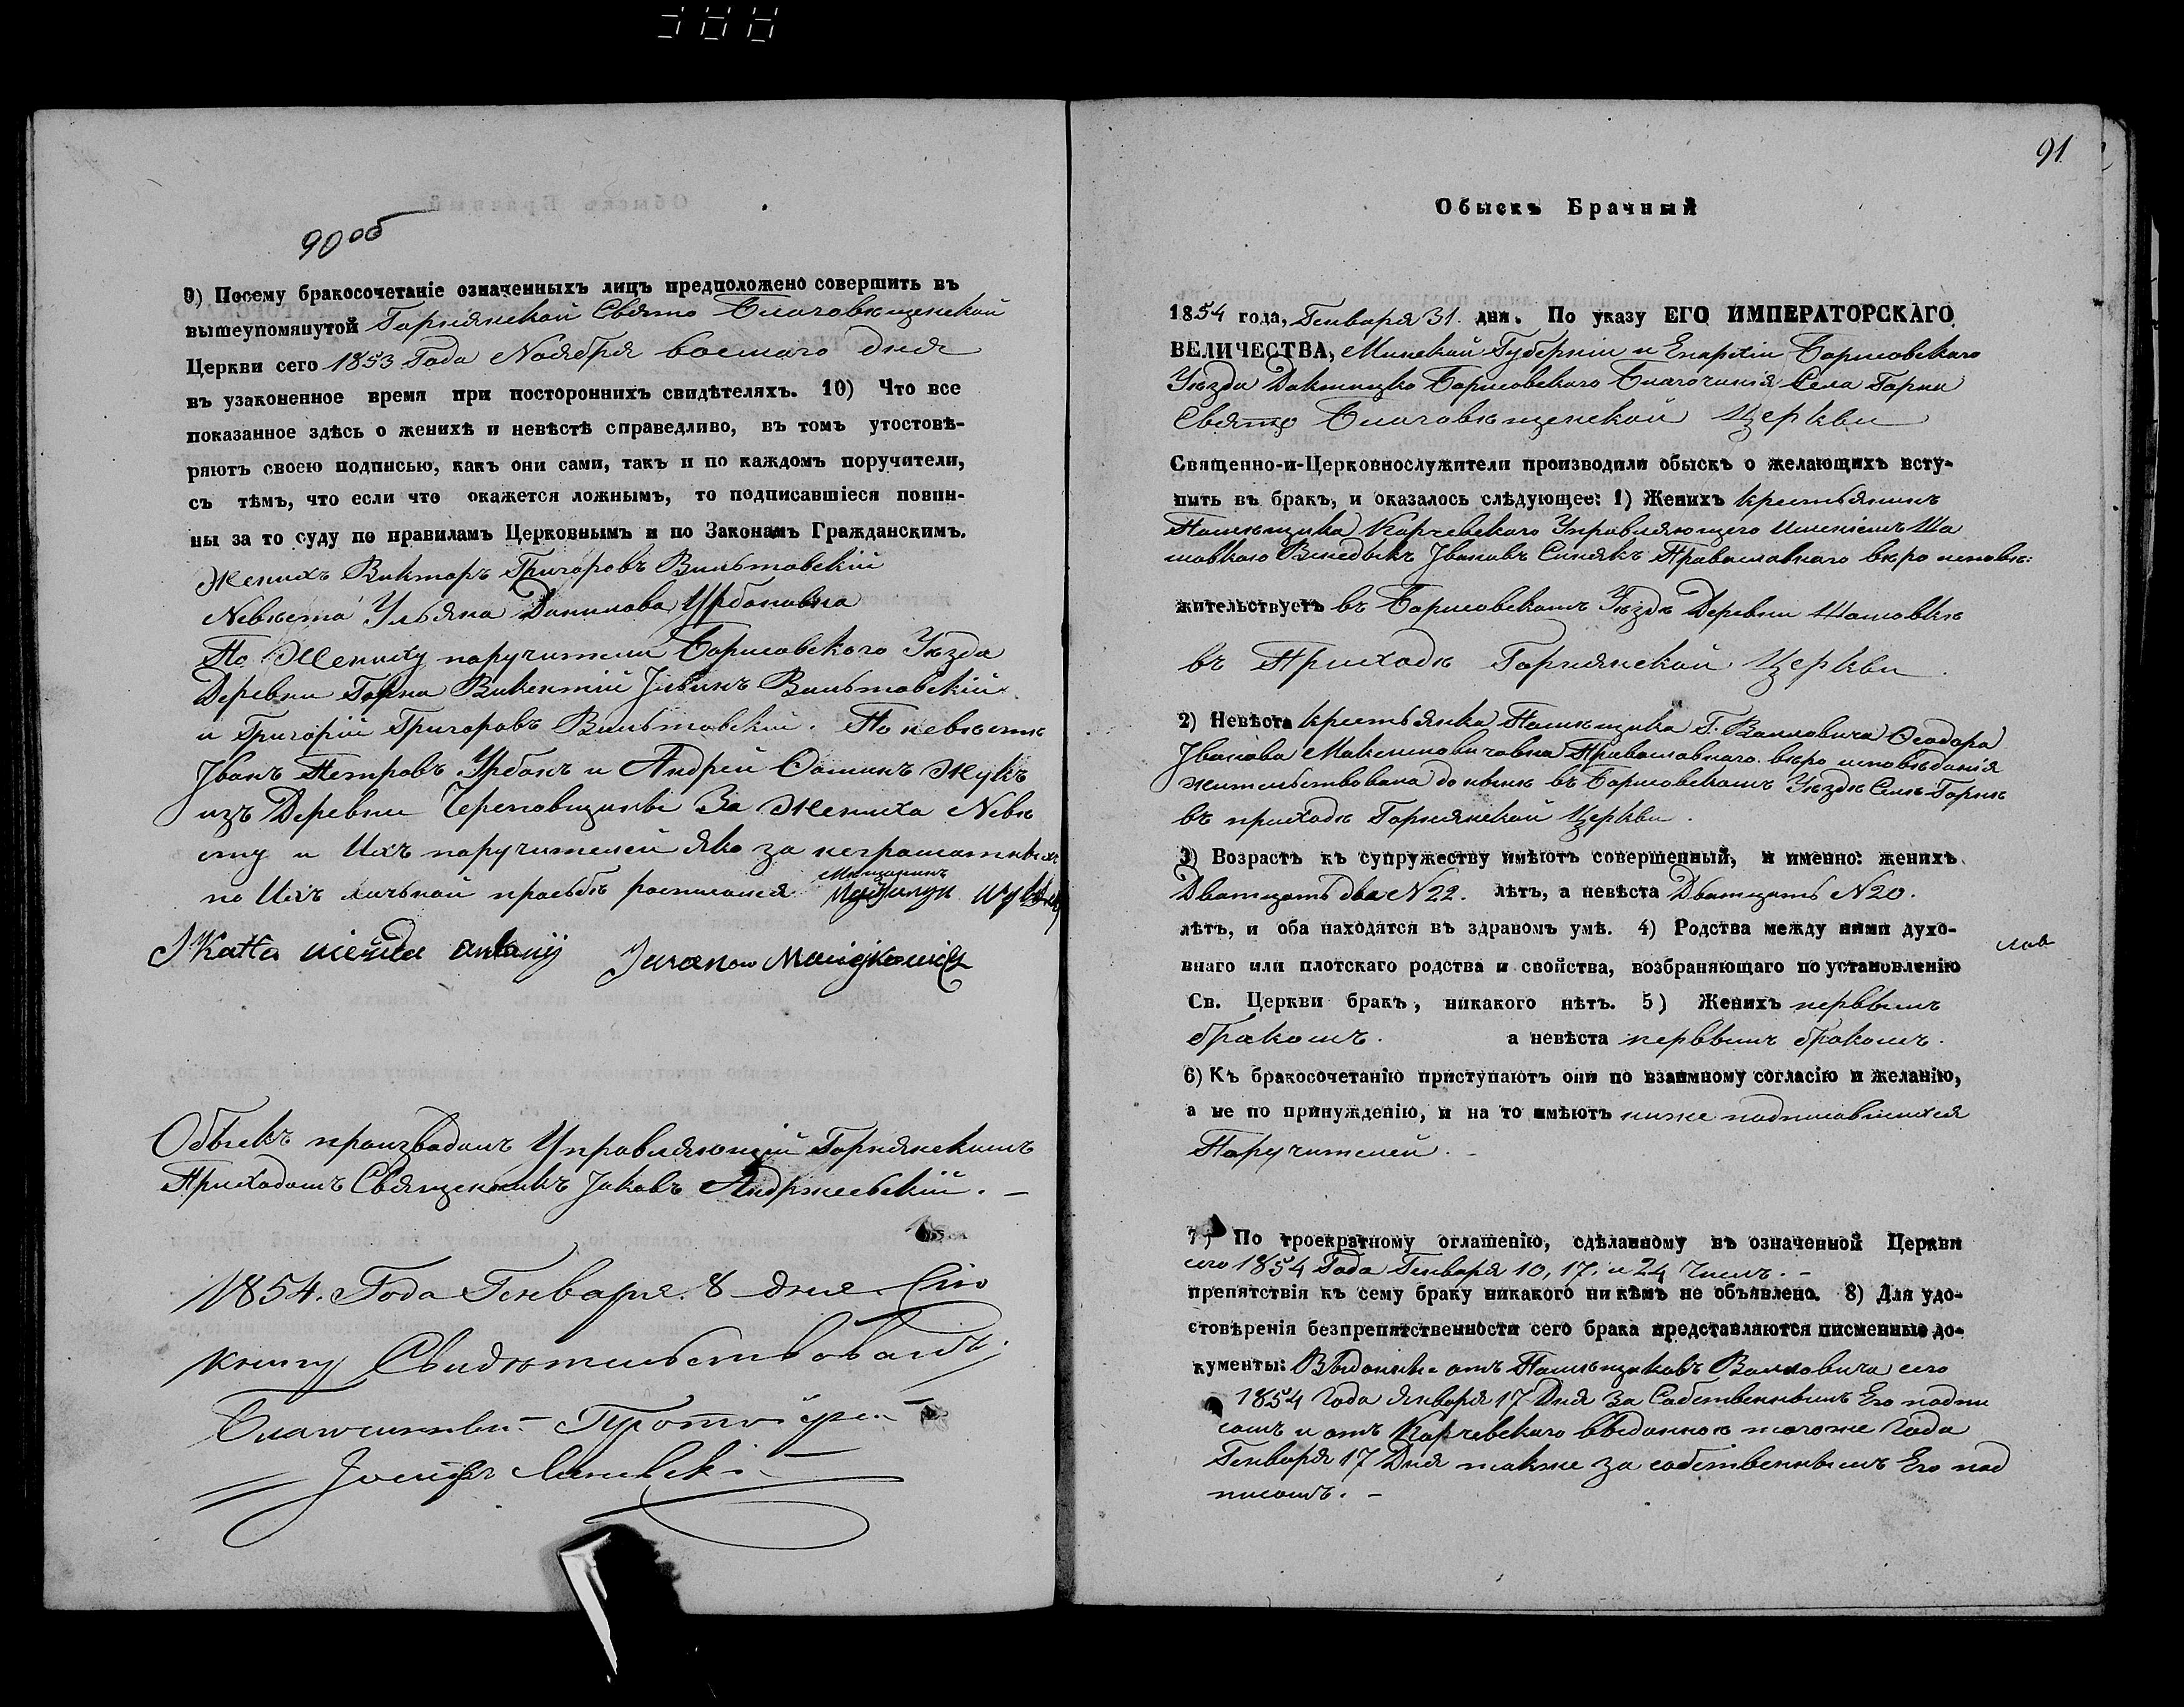 90 об
9) Посему бракосочетаніе означенныхъ лицъ предположено совершить въ
вышеупомянутой Горнянской Свято Благовѣщенской
Церкви сего 1853 Года Ноября восмаго дня
въ узаконенное время при постороннихъ свидѣтеляхъ. 10) Что все
показанное здѣсь о женихѣ и невѣстѣ справедливо, въ томъ утостовѣ-
ряютъ своею подписью, какъ они сами, такъ и по каждомъ поручители,
съ тѣмъ, что если что окажется ложнымъ, то подписавшіеся повин-
ны за то суду по правиламъ Церковнымъ и по Законамъ Гражданскимъ.
Женихъ Викторъ Григоровъ Вильтовскій
Невѣста Ульяна Данилова Урбановна
По Жениху поручители Борисовскаго Уѣзда
Деревни Горна Викентій Вильтовскій
и Григорій Григоровъ Вильтовскій. По невѣстѣ
Іванъ Петровъ Урбанъ и Андрей Жукъ
изъ Деревни За Жениха Невѣ
сту и Ихъ поручителей яко за неграмотныхъ
по Ихъ личьной прозьбѣ росписался
antoniy
Обыскъ производилъ Управляющій Горнянскимъ
Приходомъ Священникъ Іаковъ Андржеевскій. –
1854. Года Генваря. 8 дня Сію
книгу Свидѣтельствовалъ
Благочинный Протоіерей
Іосифъ
91
Обыскъ Брачный
1854 года, Генваря 31. дня. По указу ЕГО ИМПЕРАТОРСКАГО
ВЕЛИЧЕСТВА, Минской Губерніи и Епархіи Борисовскаго
Уѣзда Докшицко Борисовскаго Благочинія Села Горни
Свято Благовѣщенской Церкви
Священно-и-Церковнослужители производили обыскъ о желающихъ всту-
пить въ бракъ, и оказалось слѣдующее: 1) Женихъ крестьянинъ
Помѣщика Корчевскаго Управляющего имѣніемъ
Івановъ Синякъ Православнаго вѣро исповѣ:
жительствуетъ въ Борисовскомъ Уѣздѣ Деревни
въ Приходѣ Горнянской Церкви.
2) Невѣста крестьянка Помѣщика Г. Воловича Ѳеодора
Іванова Максимовичовна Православнаго. вѣро исповѣданія
жительствовала до нынѣ въ Борисовскомъ Уѣздѣ Селѣ Горнѣ
въ приходѣ Горнянской Церкви.
3) Возрастъ къ супружеству имѣютъ совершенный, и именно: женихъ
Дватцать два N 22. лѣтъ, а невѣста Дватцать N 20.
лѣтъ, и оба находятся въ здравомъ умѣ. 4) Родства между ними духо-
внаго или плотскаго родства и свойства, возбраняющаго по установленію
Св. Церкви бракъ, никакого нѣтъ. 5) Женихъ перьвымъ
бракомъ. а невѣста перьвымъ бракомъ.
6) Къ бракосочетанію приступаютъ они по взаимному согласію и желанію,
а не по принужденію, и на то имѣютъ ниже подписавшихся
Поручителей. –
7) По троекратному оглашенію, сдѣланному въ означенной Церкви
сего 1854 Года Генваря 10, 17, и 24 Чиселъ. –
препятствія къ сему браку никакого ни кѣмъ не объявлено. 8) Для удо-
стовѣренія безпрепятственности сего брака представляются писменные до-
кументы: Выданные отъ Помѣщиковъ Воловича сего
1854 года января 17 Дня За Собственнымъ Его подпи
сомъ и отъ Корчевскаго выданное тогоже Года
Генваря 17 Дня также за собственнымъ Его под
писомъ. –